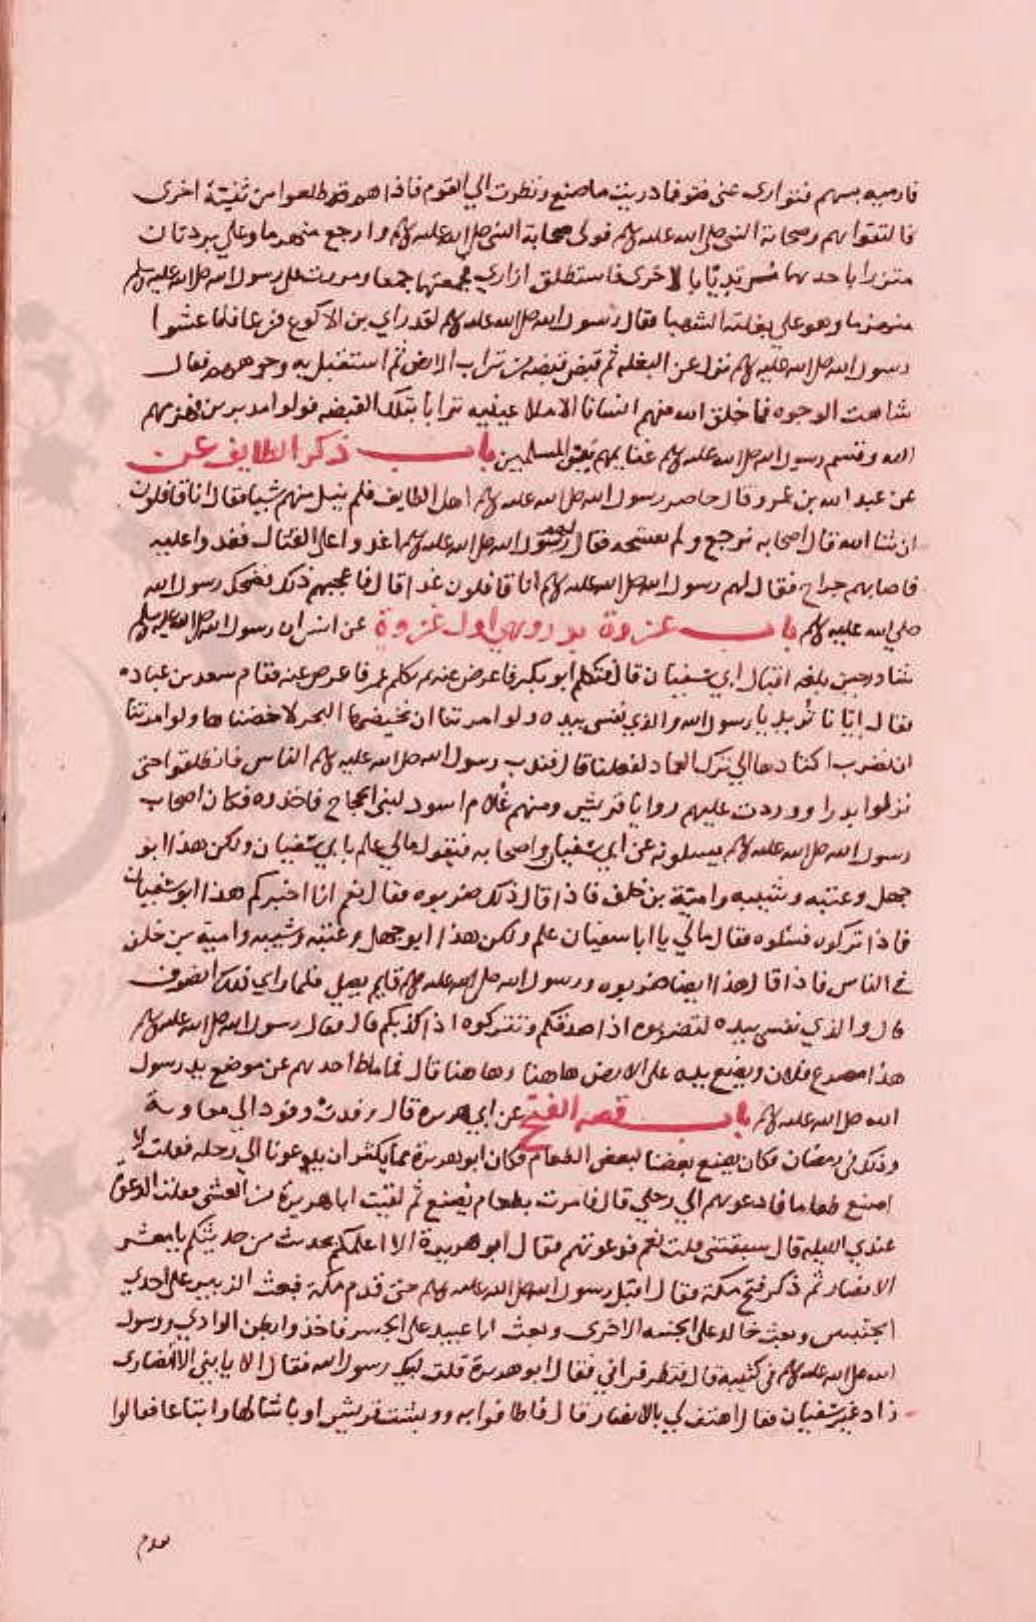 فارميه بسهم فتوارى عني فما دريت ما صنع ونظرت الي القوم فاذا هم قد طلعوا من ثنية اخرى
فالتقوا هم وصحابة النبي صلى الله عليه وسلم فولى صحابة النبي صلى الله عليه وسلم وارجع منهزما وعلي بردتان
متزرا باحديهما مرتديا بالاخرى فاستطلق ازاري فجمعتها جمعا ومررت على رسول الله صلى الله عليه وسلم
منهزما وهو على بغلته الشهبا فقال رسول الله صلى الله عليه وسلم لقد راي بن الاكوع فزعا فلما غشوا
رسول الله صلى الله عليه وسلم نزل عن البغله ثم قبض قبضة من تراب الارض ثم استقبل به وجوههم فقال
شاهت الوجوه فما خلق الله منهم انسانا الا ملا عينيه ترابا بتلك القبضه فولوا مدبرين فهزمهم
الله وقسم رسول الله صلى الله عليه وسلم غنايمهم بين المسلمين باب ذكر الطايف عن
عن عبد الله بن عمرو قال حاصر رسول الله صلى الله عليه وسلم اهل الطايف فلم ينل منهم شيا فقال انا قافلون
ان شا الله قال اصحابه نرجع ولم نفتتحه فقال لهم رسول الله صلى الله عليه وسلم اغدوا على القتال فغدوا عليه
فاصابهم جراح فقال لهم رسول الله صلى الله عليه وسلم انا قافلون غدا قال فاعجبهم ذلك فضحك رسول الله
صلى الله عليه وسلم باب غزوة بدر وهي اول غزوة عن انس ان رسول الله صلى الله عليه وسلم
شاور حين بلغه اقبال ابي سفيان قال فتكلم ابو بكر فاعرض عنه ثم تكلم عمر فاعرض عنه فقام سعد بن عباده
فقال ايانا تريد يا رسول الله والذي نفسي بيده ولو امرتنا ان نخيضها البحر لاخضناها ولو امرتنا
ان نضرب اكبادها الي برك الغماد لفعلنا قال فندب رسول الله صلى الله عليه وسلم الناس فانطلقوا حتى
نزلوا بدرا ووردت عليهم روايا قريش ومنهم غلام اسود لبني الحجاج فاخذوه فكان اصحاب
رسول الله صلى الله عليه وسلم يسلونه عن ابي سفيان واصحابه فيقول مالي علم بابي سفيان ولكن هذا ابو
جهل وعتبه وشيبه وامية بن خلف فاذا قال ذلك ضربوه فقال نعم انا اخبركم هذا ابو سفيان
فاذا تركوه فسئلوه فقال مالي يا ابا سفيان علم ولكن هذا ابو جهل وعتبه وشيبه وامية بن خلف
في الناس فاذا قال هذا ايضا ضربوه ورسول الله صلى الله عليه وسلم قايم يصلي فلما راي ذلك انصرف
قال والذي نفسي بيده لتضربوه اذا صدقكم وتتركوه اذا كذبكم قال فقال رسول الله صلى الله عليه وسلم
هذا مصرع فلان ويضع يده على الارض هاهنا وهاهنا قال فما ماط احدهم عن موضع يد رسول
الله صلى الله عليه وسلم باب قصه الفتح عن ابي هريره قال وفدت وفود الي معاوية
وذلك في رمضان فكان يصنع بعضنا لبعض الطعام فكان ابو هريرة مما يكثر ان يدعونا الي رحله فقلت الا
اصنع طعاما فادعوهم الي رحلي قال فامرت بطعام يصنع ثم لقيت ابا هريرة من العشي فقلت الدعوة
عندي الليله قال سبقتني قلت نعم فدعوتهم فقال ابو هريرة الا اعلمكم بحديث من حديثكم يا معشر
الانصار ثم ذكر فتح مكة فقال اقبل رسول الله صلى الله عليه وسلم حتى قدم مكة فبعث الزبير على احدي
المجنبتين وبعث خالد على المجنبه الاخرى وبعث ابا عبيد على الحسر فاخذوا بطن الوادي ورسول
الله صلى الله عليه وسلم في كتيبه قال فنظر فراني فقال ابو هريرة قلت لبيك رسول الله فقال الا ياتيني الا انصارى
زاد غير شيبان فقال اهتف لي بالانصار قال فاطافوا به ووبشت قريش اوباشا لها واتباعا فقالوا
نقدم